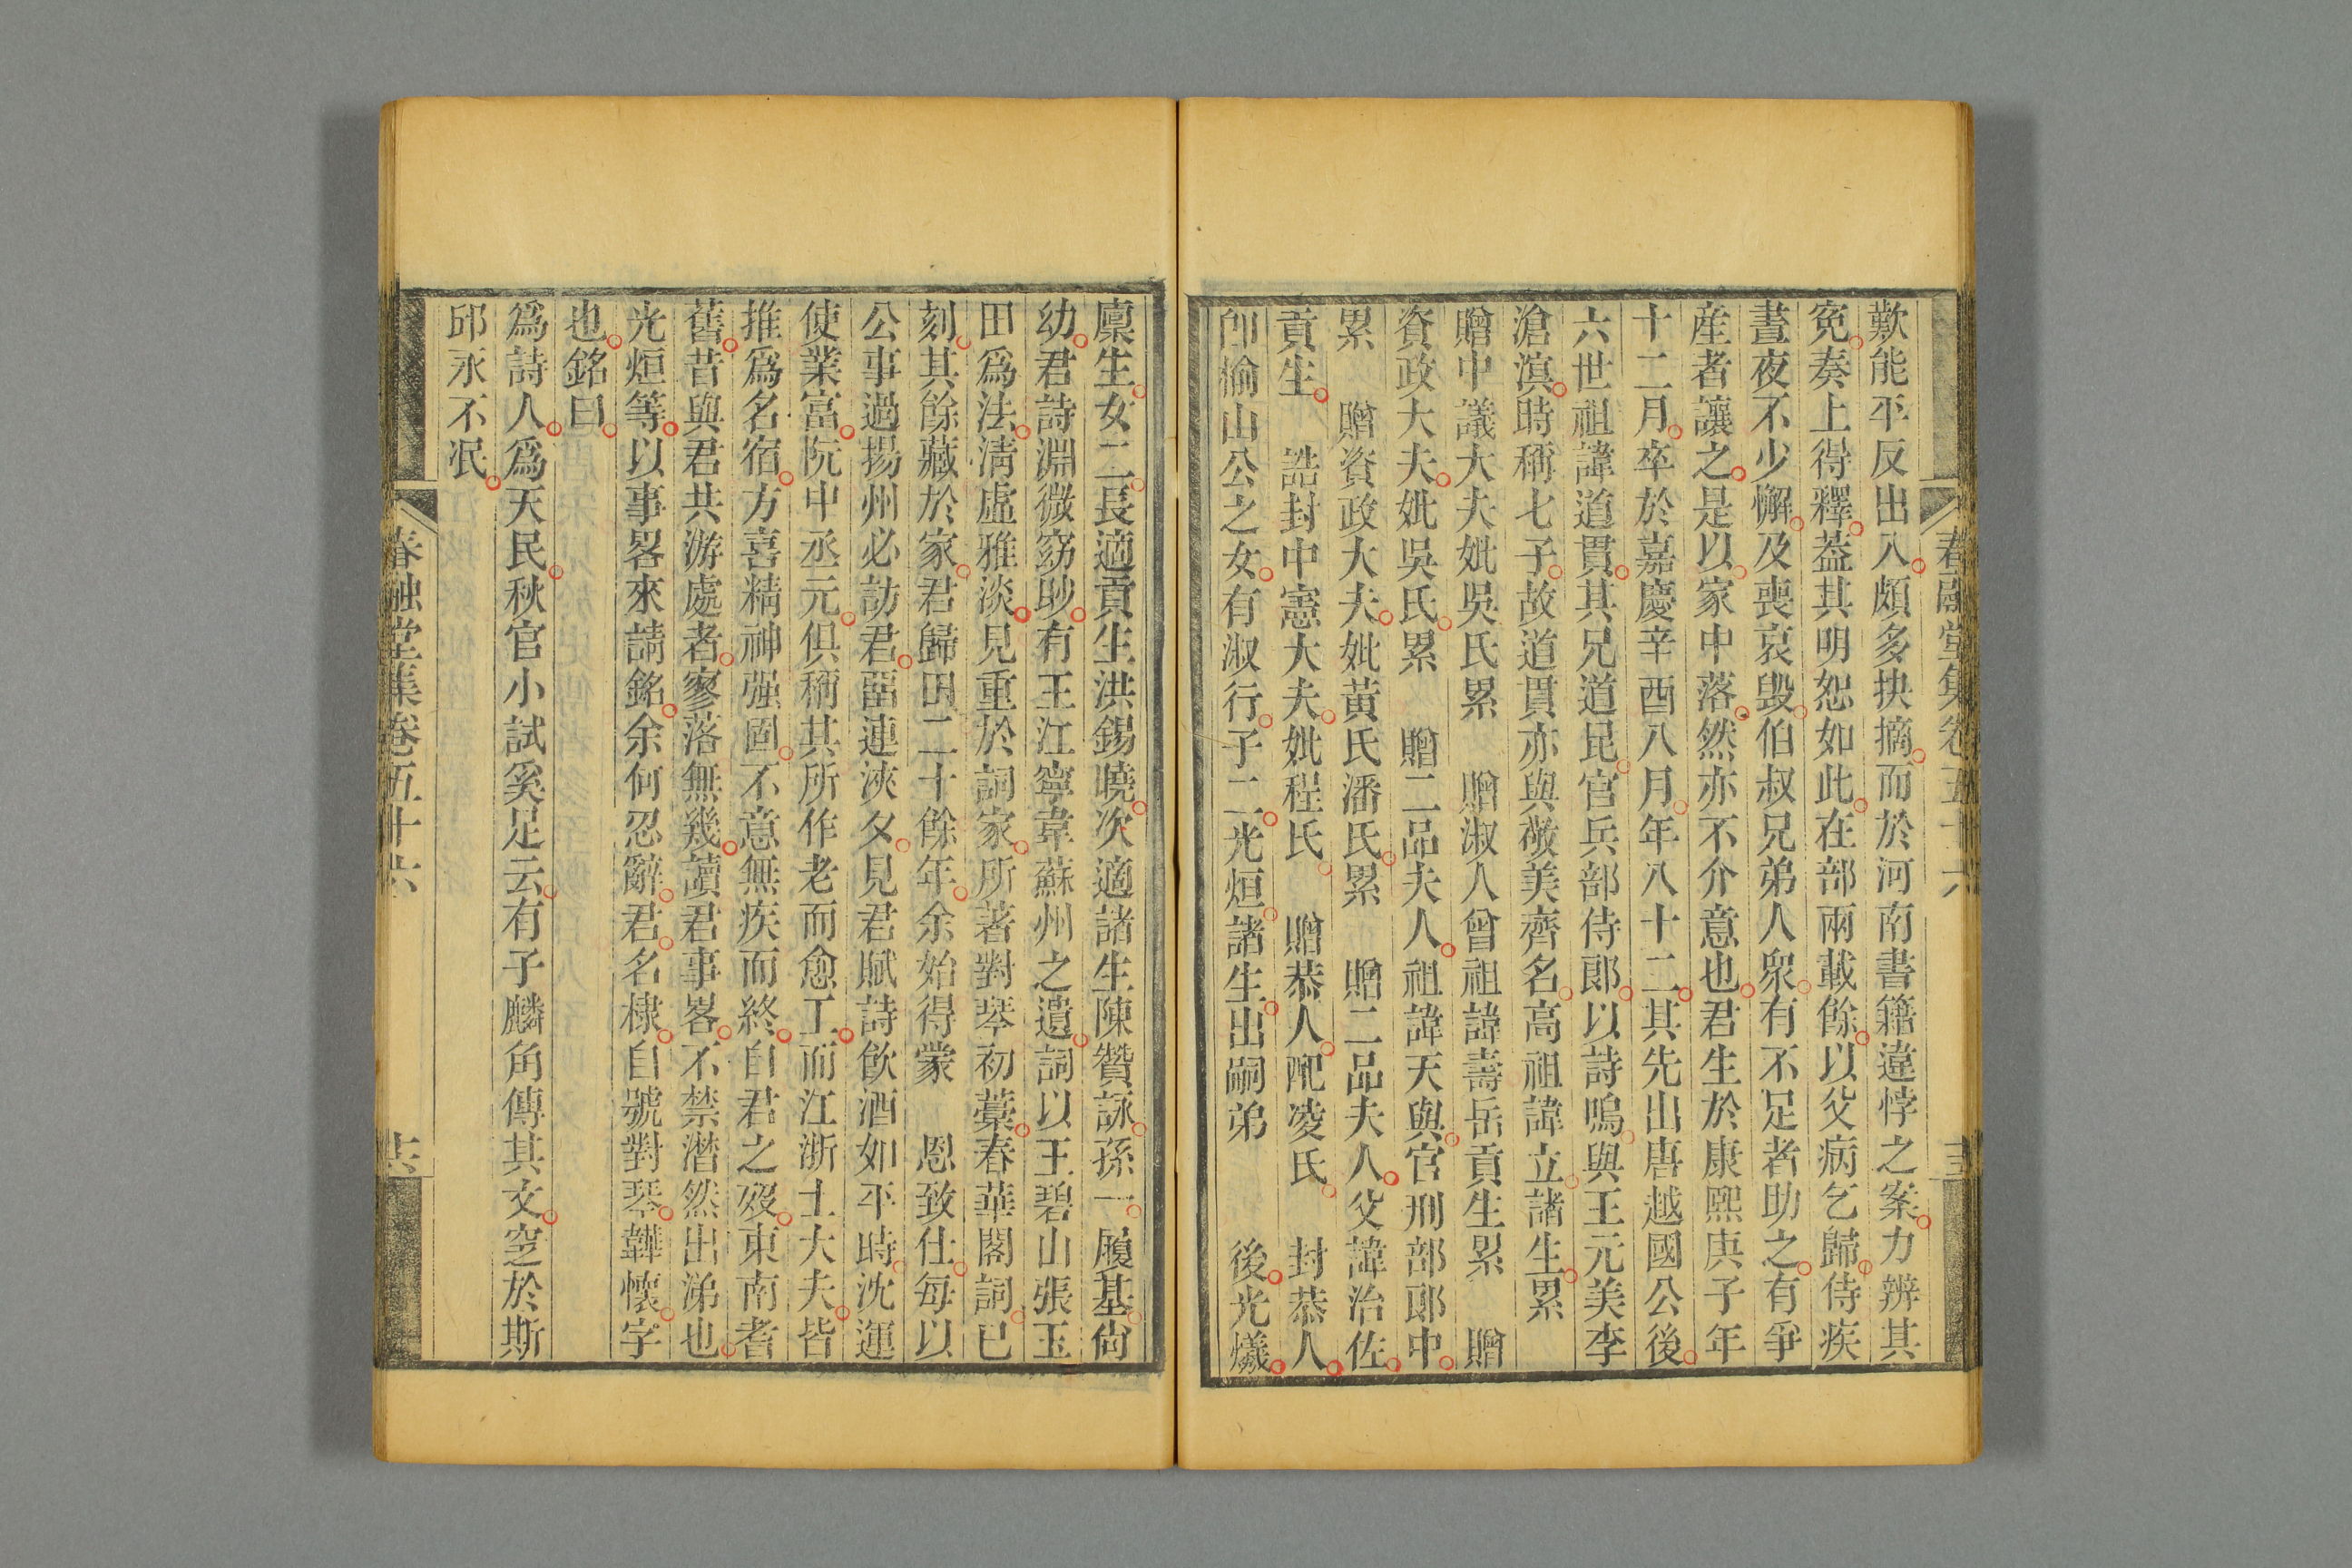 春融堂集卷五十六
歎能平反出入頗多抉摘而於河南書籍違悖之案力辨其
寃奏上得釋葢其明恕如此在部兩載餘以父病乞歸侍疾
晝夜不少懈及喪哀毀伯叔兄弟人衆有不足者助之有爭
産者讓之是以家中落然亦不介意也君生於康熙庚子年
十二月卒於嘉慶辛酉八月年八十二其先出唐越國公後
六世祖諱道貫其兄道昆官兵部侍郎以詩鳴與王元美李
滄溟時稱七子故道貫亦與敬美齊名高祖諱立諸生累
贈中議大夫妣吳氏累　贈淑人曾祖諱壽岳貢生累　贈
資政大夫妣吳氏累　贈二品夫人祖諱天與官刑部郎中
累　贈資政大夫妣黃氏潘氏累　贈二品夫人父諱治佐
貢生　誥封中憲大夫妣程氏　贈恭人配凌氏　封恭人
卽榆山公之女有淑行子二光烜諸生出嗣弟　後光爔
廩生女二長適貢生洪錫曉次適諸生陳贊詠孫一履基尙
幼君詩淵微窈眇有王江寧韋蘇州之遺詞以王碧山張玉
田爲法淸虛雅淡見重於詞家所著對琴初藁春華閣詞已
刻其餘藏於家君歸田二十餘年余始得蒙　恩致仕每以
公事過揚州必訪君畱連浹夕見君賦詩飮酒如平時沈運
使業富阮中丞元俱稱其所作老而愈工而江浙士大夫皆
推爲名宿方喜精神强固不意無疾而終自君之歿東南耆
舊昔與君共游處者寥落無幾讀君事畧不禁潸然出涕也
光烜等以事畧來請銘余何忍辭君名棣自號對琴韡懷字
也銘曰
爲詩人爲天民秋官小試奚足云有子麟角傳其文窆於斯
邱永不泯
春融堂集卷五十六